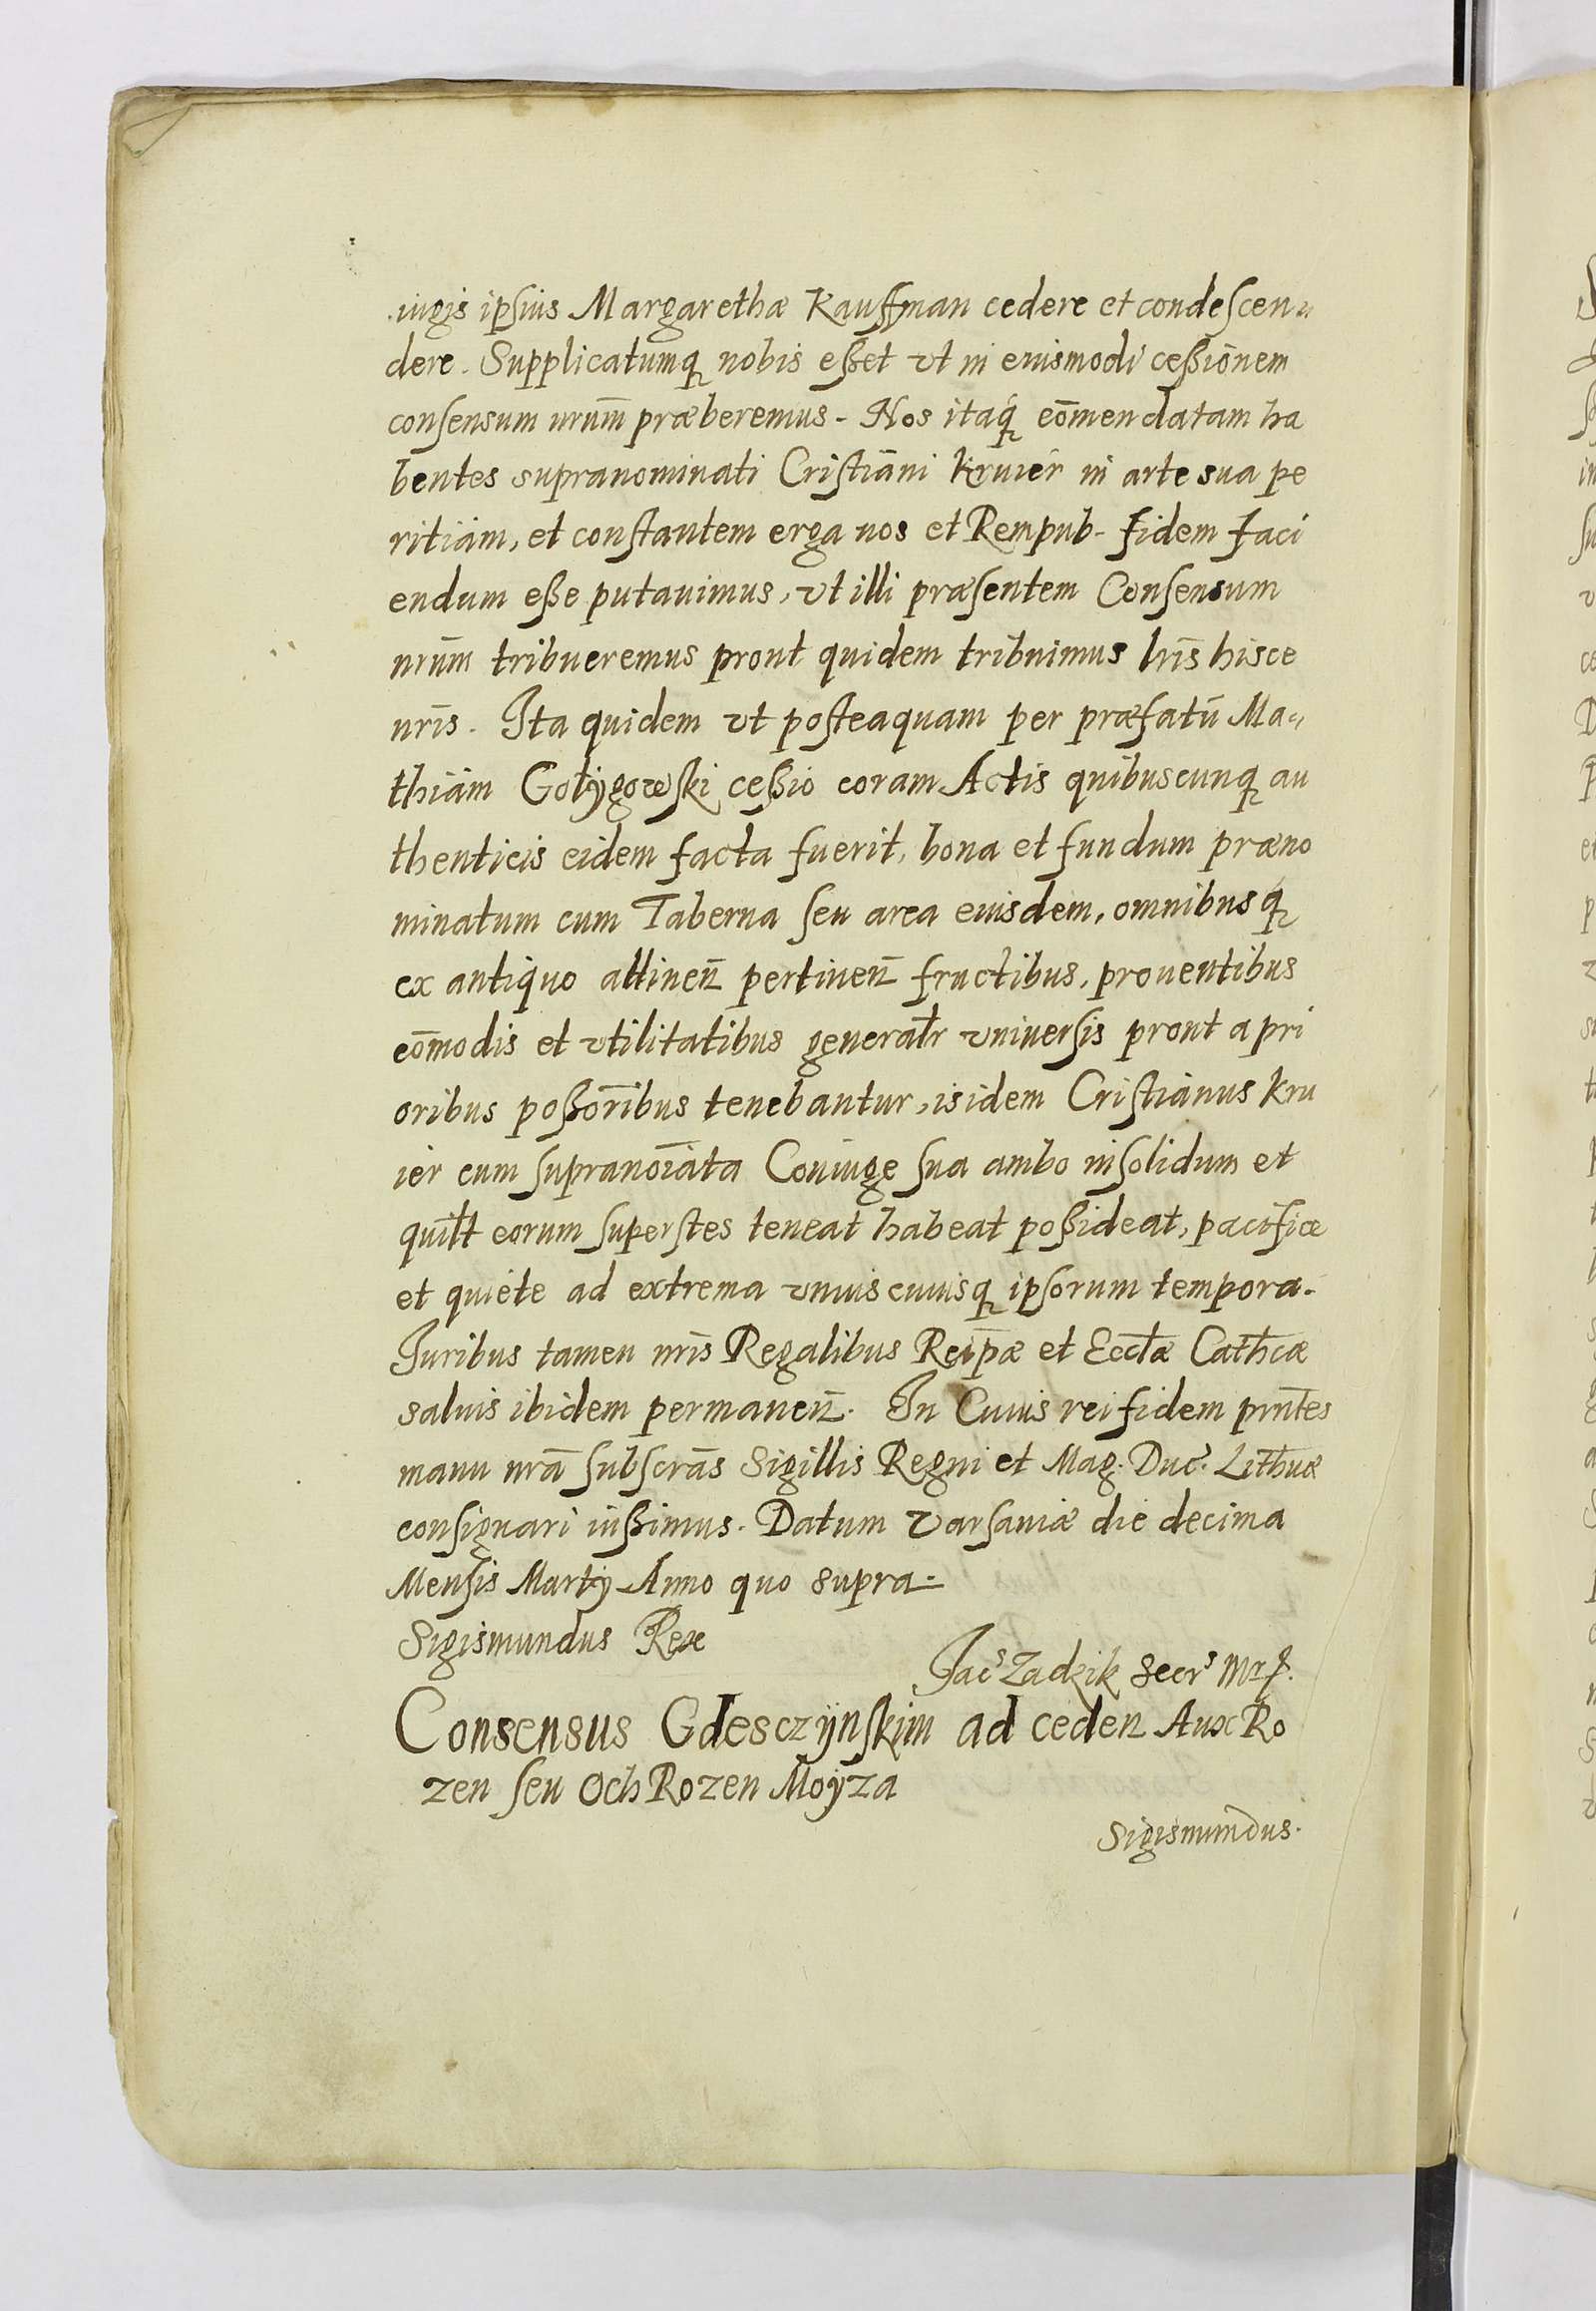 iugis ipsius Margarethæ Kauffman cedere et condescen
dere. Supplicatumq́ꝫ nobis eßet vt in euismodi ceßionem
consensum nrum̃ præberemus. Nos itaq́ꝫ com̃endatam ha
bentes supranominati Cristiani Kruier in arte sua pe
ritiam, et constantem erga nos et Rempub. fidem faci
endum eße putauimus, vt illi præsentem Consensum
nrum̃ tribueremus prout quidem tribuimus lrĩs hisce
nrĩs. Ita quidem vt posteaquam per præfatũ Ma
thiam Gołygowski ceßio coram Actis quibuscunqꝫ au
thenticis eidem facta fuerit, bona et fundum præno
minatum cum Taberna seu area euisdem, omnibusq́ꝫ
ex antiquo attineñ pertineñ fructibus, prouentibus
com̃odis et vtilitatibus generalr̃ vniuersis prout a pri
oribus poßorĩbus tenebantur, isidem Cristianus Kru
ier cum supranoĩata Coniuge sua ambo insolidum et
quilt̃ eorum superstes teneat habeat poßideat, pacifice
et quiete ad extrema vnuiscuiusqꝫ ipsorum tempora.
Juribus tamen nrĩs Regalibus Reip̃æ et Eccl̃æ Cathcæ
saluis ibidem permaneñ. In Cuius rei fidem prnt̃es
manu nrã subscrãs Sigillis Regni et Mag. Duc. Lithuæ
consignari iußimus. Datum Varsauiæ die decima
Mensis Martij Anno quo supra.
Sigismundus Rex
Jac͛s Zadzik Secr͛s Mr ꝑ.
Consensus Gdesczÿnskim ad ceden Aux Ro
zen seu Och Rozen Moÿza
Sigismundus.